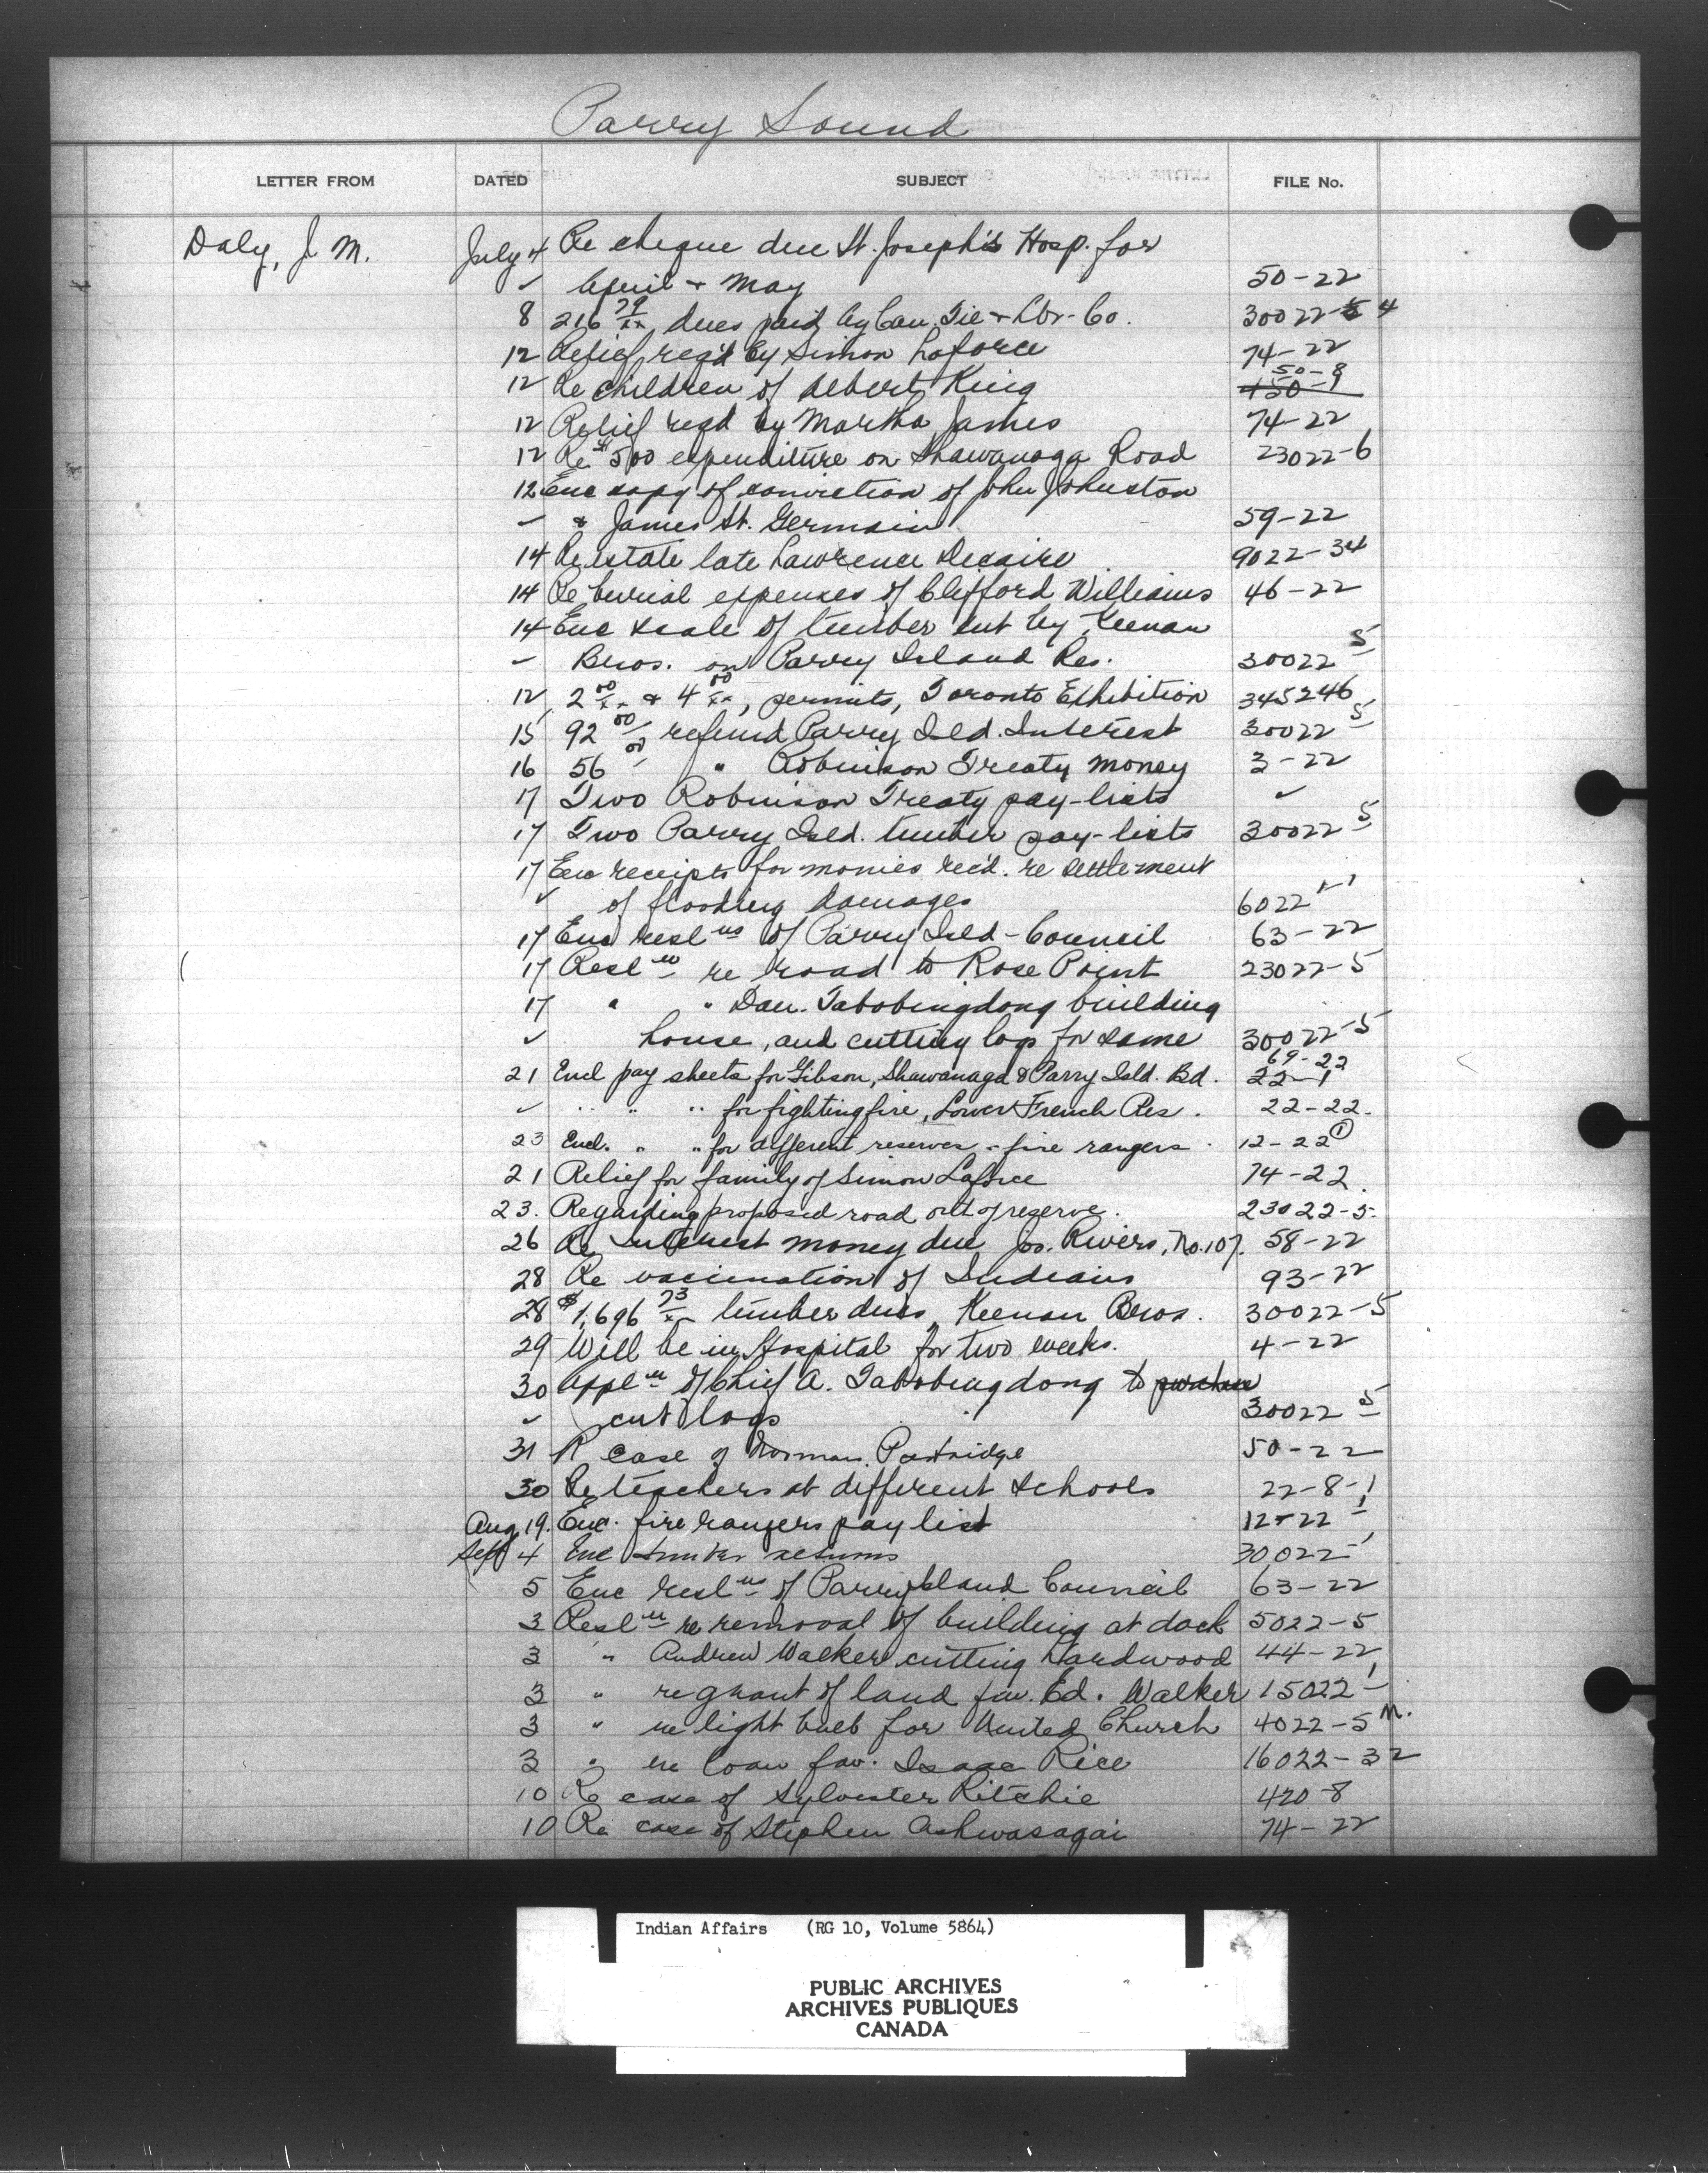 Parry Sound
LETTER FROM DATED SUBJECT FILE No.
Daly, J. M. July 4 Re cheque due St. Joseph's Hosp. for
" April + May 50-22
8 216 79/xx dues paid by Can. Tie + Lbr. Co. 30022-5 4
12 Relief req'd by Simon Laforce 74-22
50-8
12 Re children of Albert King 450-9
12 Relief reqd by Martha James 74-22
12 Re $500 expenditure on Shawanaga Road 23022-6
12 Enc copy of conviction of John Johnston
" & James St. Germain 59-22
14 Re estate late Lawrence Decaire 9022-34
14 Re burial expenses of Clifford Williams 46-22
14 Enc scale of timber cut by Keenan
" Bros. on Parry Island Res. 30022-5
12 2 00/xx & 4 00/xx, permits, Toronto Exhibition 345246
15 92 00/ refund Parry Isld. Interest 30022-5
16 56 00/ " Robinson Treaty money 3-22
17 Two Robinson Treaty pay-lists "
17 Two Parry Isld. timber pay-lists 30022-5
17 Enc receipts for monies rec'd. re settlement
" of flooding damages 6022-1-1
17 Enc resl ns of Parry Isld-Council 63-22
17 Resl n re road to Rose Point 23022-5
17 " " Dan. Tabobingdong building
" house, and cutting logs for same 30022-5
69-22
21 Encl pay sheets for Gibson, Shawanaga & Parry Isld. Bd. 22-1
" " " " for fighting fire, Lower French Res. 22-22.
23 Encl. " " for different reserves - fire rangers. 12-22 1
21 Relief for family of Simon Laforce 74-22.
23. Regarding proposed road out of reserve. 23022-5.
26 Re Interest money due Jos. Rivers, No. 107. 58-22
28 Re vaccination of Indians 93-22
28 $1,696 73/xx timber dues, Keenan Bros. 30022-5
29 Will be in Hospital for two weeks. 4-22
30 Appl n of Chief A. Tabobingdong to purchase
" cut logs 30022-5
31 R case of Norman Partridge 50-22
30 Re teachers at different schools 22-8-1
Aug 19. Enc. fire rangers pay list 12-22-1
Sept 4 Enc timber returns 30022-1
5 Enc resl ns of Parry Island Council 63-22
3 Resl n re removal of building at dock 5022-5
3 " Andrew Walker cutting hardwood 44-22
3 " re grant of land fav. Ed. Walker 15022-1
3 " re light bulb for United Church 4022-5 M.
3 " re loan fav. Isaac Rice 16022-32
10 Re case of Sylvester Ritchie 420-8
10 Re case of Stephen Ashwasagai 74-22
Indian Affairs (RG 10, Volume 5864)
PUBLIC ARCHIVES
ARCHIVES PUBLIQUES
CANADA